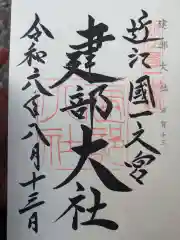 近江國一之宮
建部大社
令和六年八月十三日